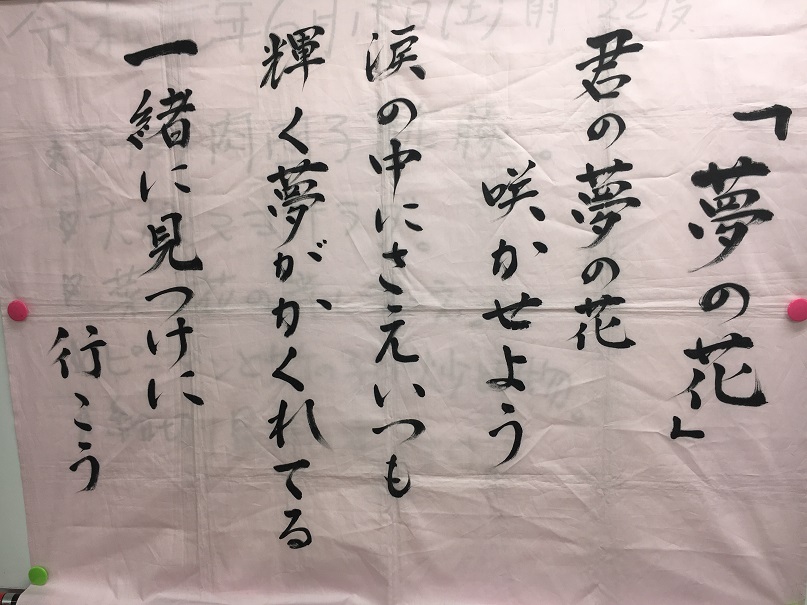 「夢の花」
君の夢の花
咲かせよう
涙の中にさえいつも
輝く夢がかくれてる
一緒に見つけに
行こう